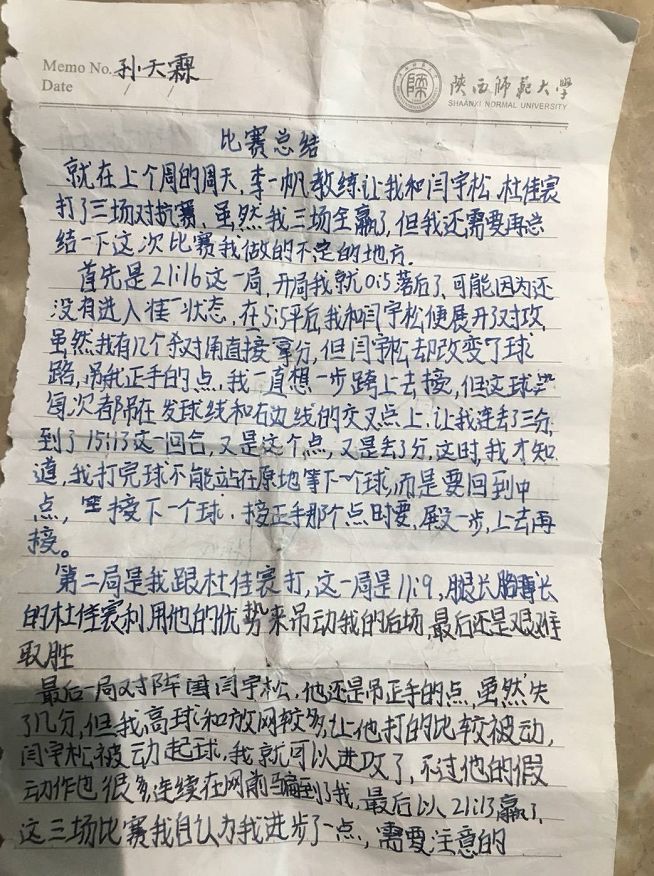 Memo No. 孙天霖
Date / /
陕西师范大学
SHAANXI NORMAL UNIVERSITY
比赛总结
就在上个周的周天,李一帆教练让我和闫宇松、杜佳寰
打了三场对抗赛,虽然我三场全赢了,但我还需要再总
结一下这次比赛我做的不足的地方.
首先是21:16这一局,开局我就0:5落后了,可能因为还
没有进入状态,在5:5平后,我和闫宇松便展开了对攻,
虽然我有几个杀对角直接拿分,但闫宇松却改变了球
路,吊我正手的点,我一直想一步跨上去接,但这球
每次都吊在发球线和右边线的交叉点上.让我连丢了三分,
到了15:13这一回合,又是这个点,又是丢了分,这时,我才知
道,我打完球不能站在原地等下一个球,而是要回到中
点,接下一个球.接正手那个点时要,殿一步,上去再
接。
第二局是我跟杜佳寰打,这一局是11:9,腿长胳膊长
的杜佳寰利用他的优势来吊动我的后场,最后还是艰难
取胜
最后一局对阵闫宇松,他还是吊正手的点,虽然失
了几分,但我高球和放网较多,让他打的比较被动,
闫宇松被动起球,我就可以进攻了,不过他的假
动作也很多,连续在网前骗到了我,最后以21:13赢了,
这三场比赛我自认为我进步了一点,需要注意的